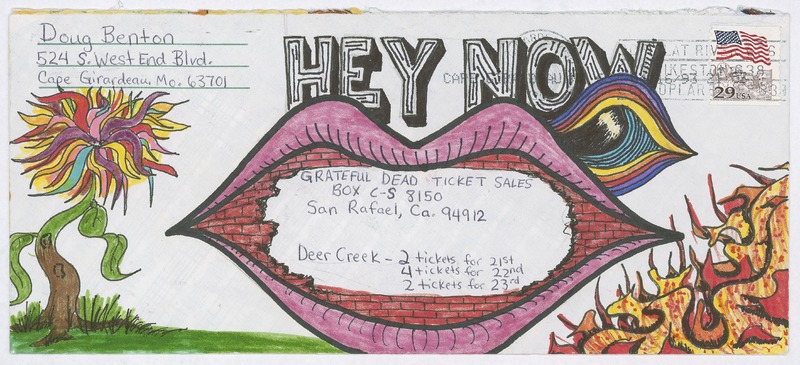 Doug Benton
524 S. West End Blvd.
Cape Girardeau, Mo. 63701
HEY NOW
29 USA
GRATEFUL DEAD TICKET SALES
BOX C-S 8150
San Rafael, Ca. 94912
Deer Creek - 2 tickets for 21st
4 tickets for 22nd
2 tickets for 23rd